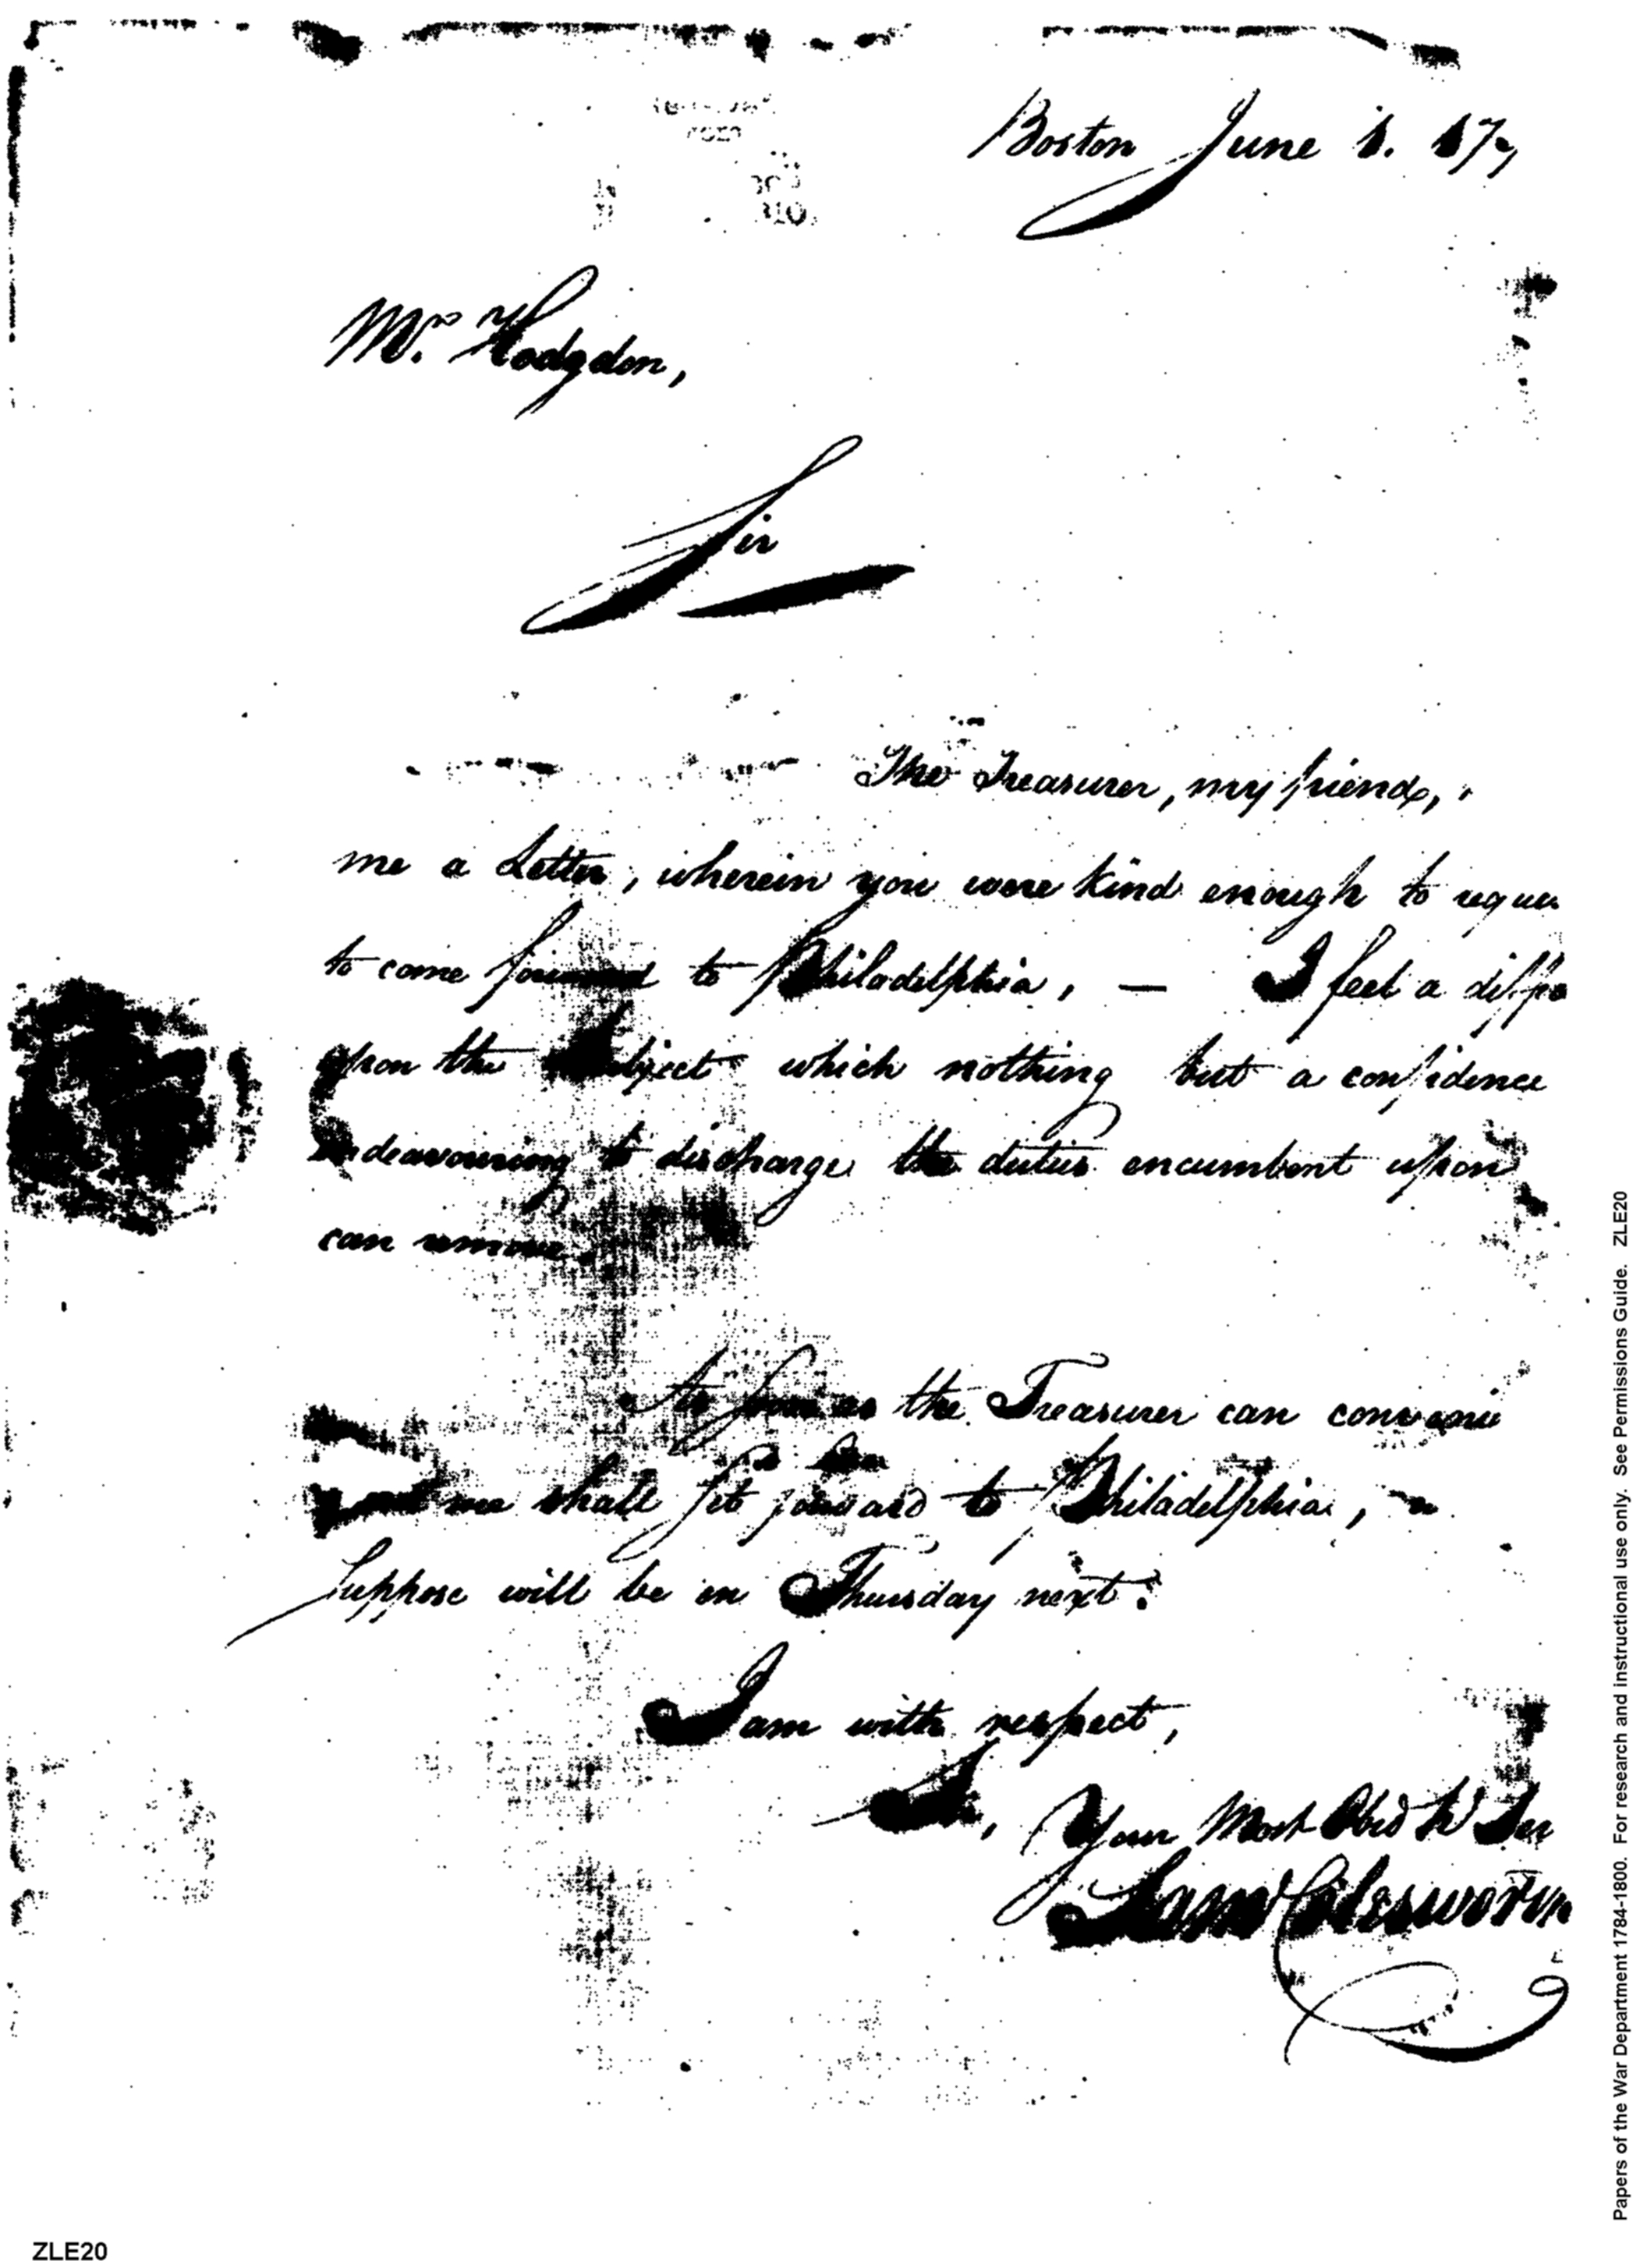 Boston June 1. 17
Mr. Hodgdon,
Sir
The Treasurer, my friend,
me a Letter, wherein you were kind enough to reques
to come forward to Philadelphia, — I feel a diffe
upon the Subject which nothing but a confidence
endeavouring to discharge the duties encumbent upon
can remove.
As soon as the Treasurer can convenie
we shall set forward to Philadelphia,
Suppose will be on Thursday next.
I am with respect,
Sir, Your Most Obed Ser
Sam
Papers of the War Department 1784-1800. For research and instructional use only. See Permissions Guide. ZLE20
ZLE20